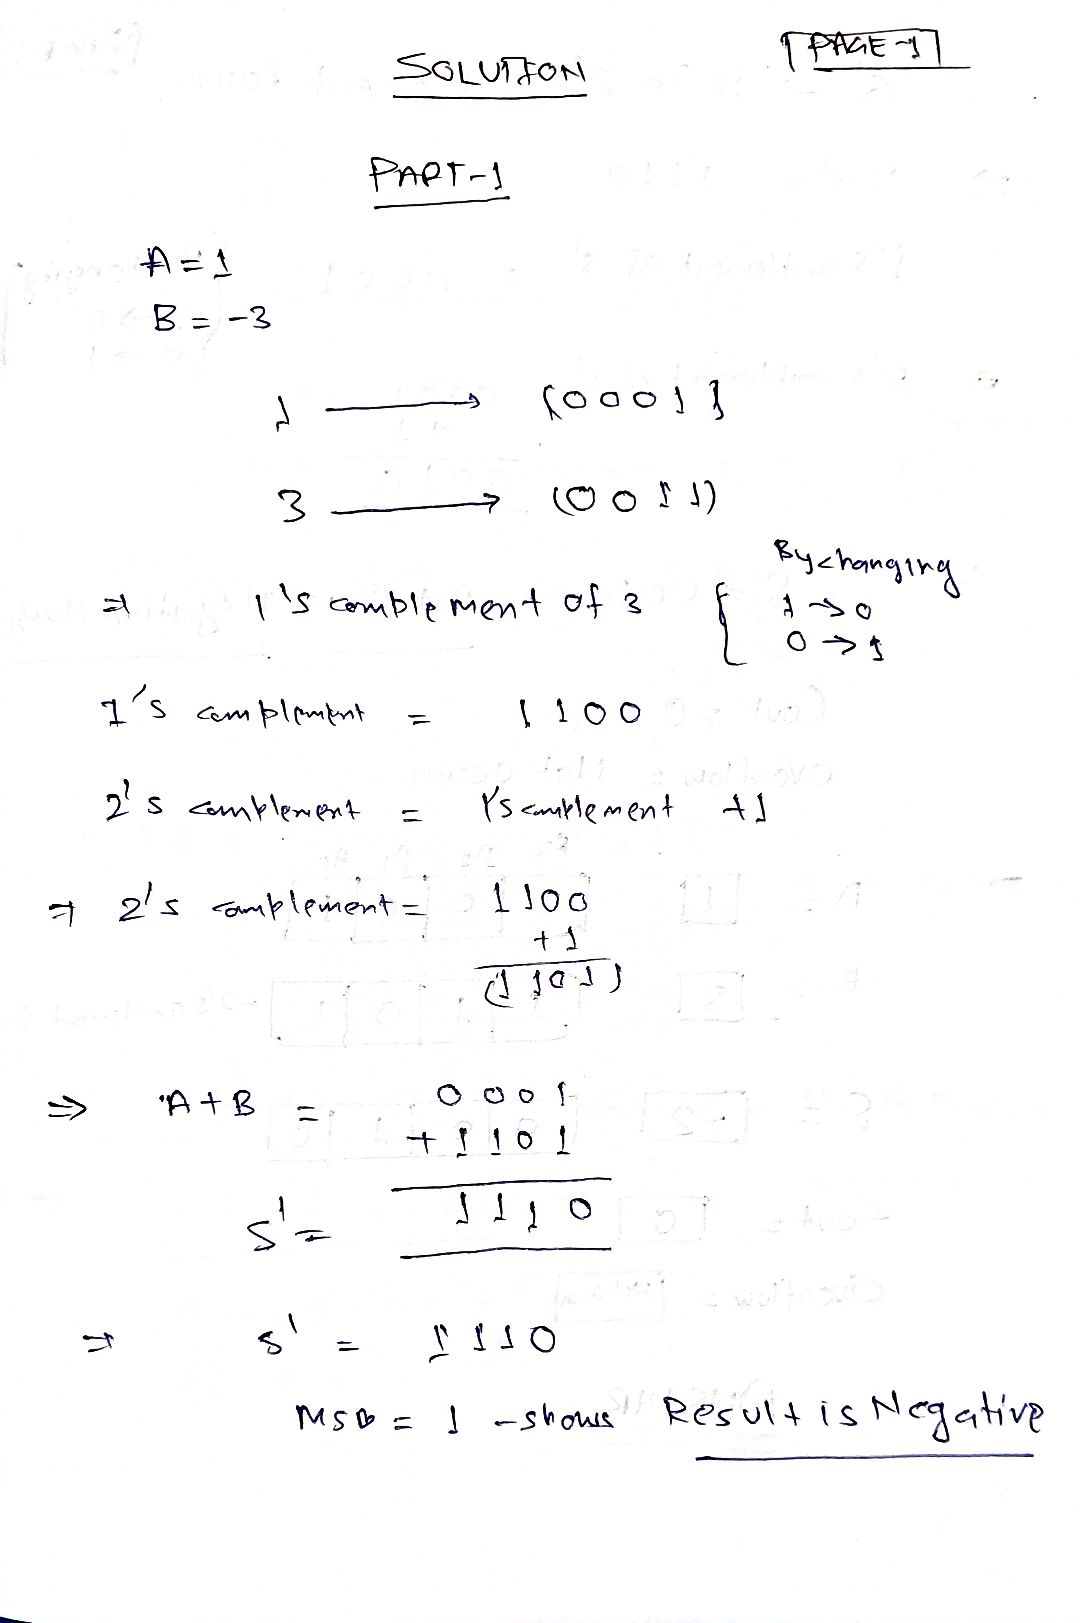 PAGE-1
SOLUTION
PART-1
A = 1
B = -3
1 ⟶ (0001)
3 ⟶ (0011)
By changing
⇒ 1's complement of 3 { 1→0
0→1
1's complement = 1100
2's complement = 1's complement +1
⇒ 2's complement = 1100
+1
(1101)
⇒ A+B = 0001
+1101
S' = 1110
⇒ S' = 1110
MSB = 1 -shows Result is Negative